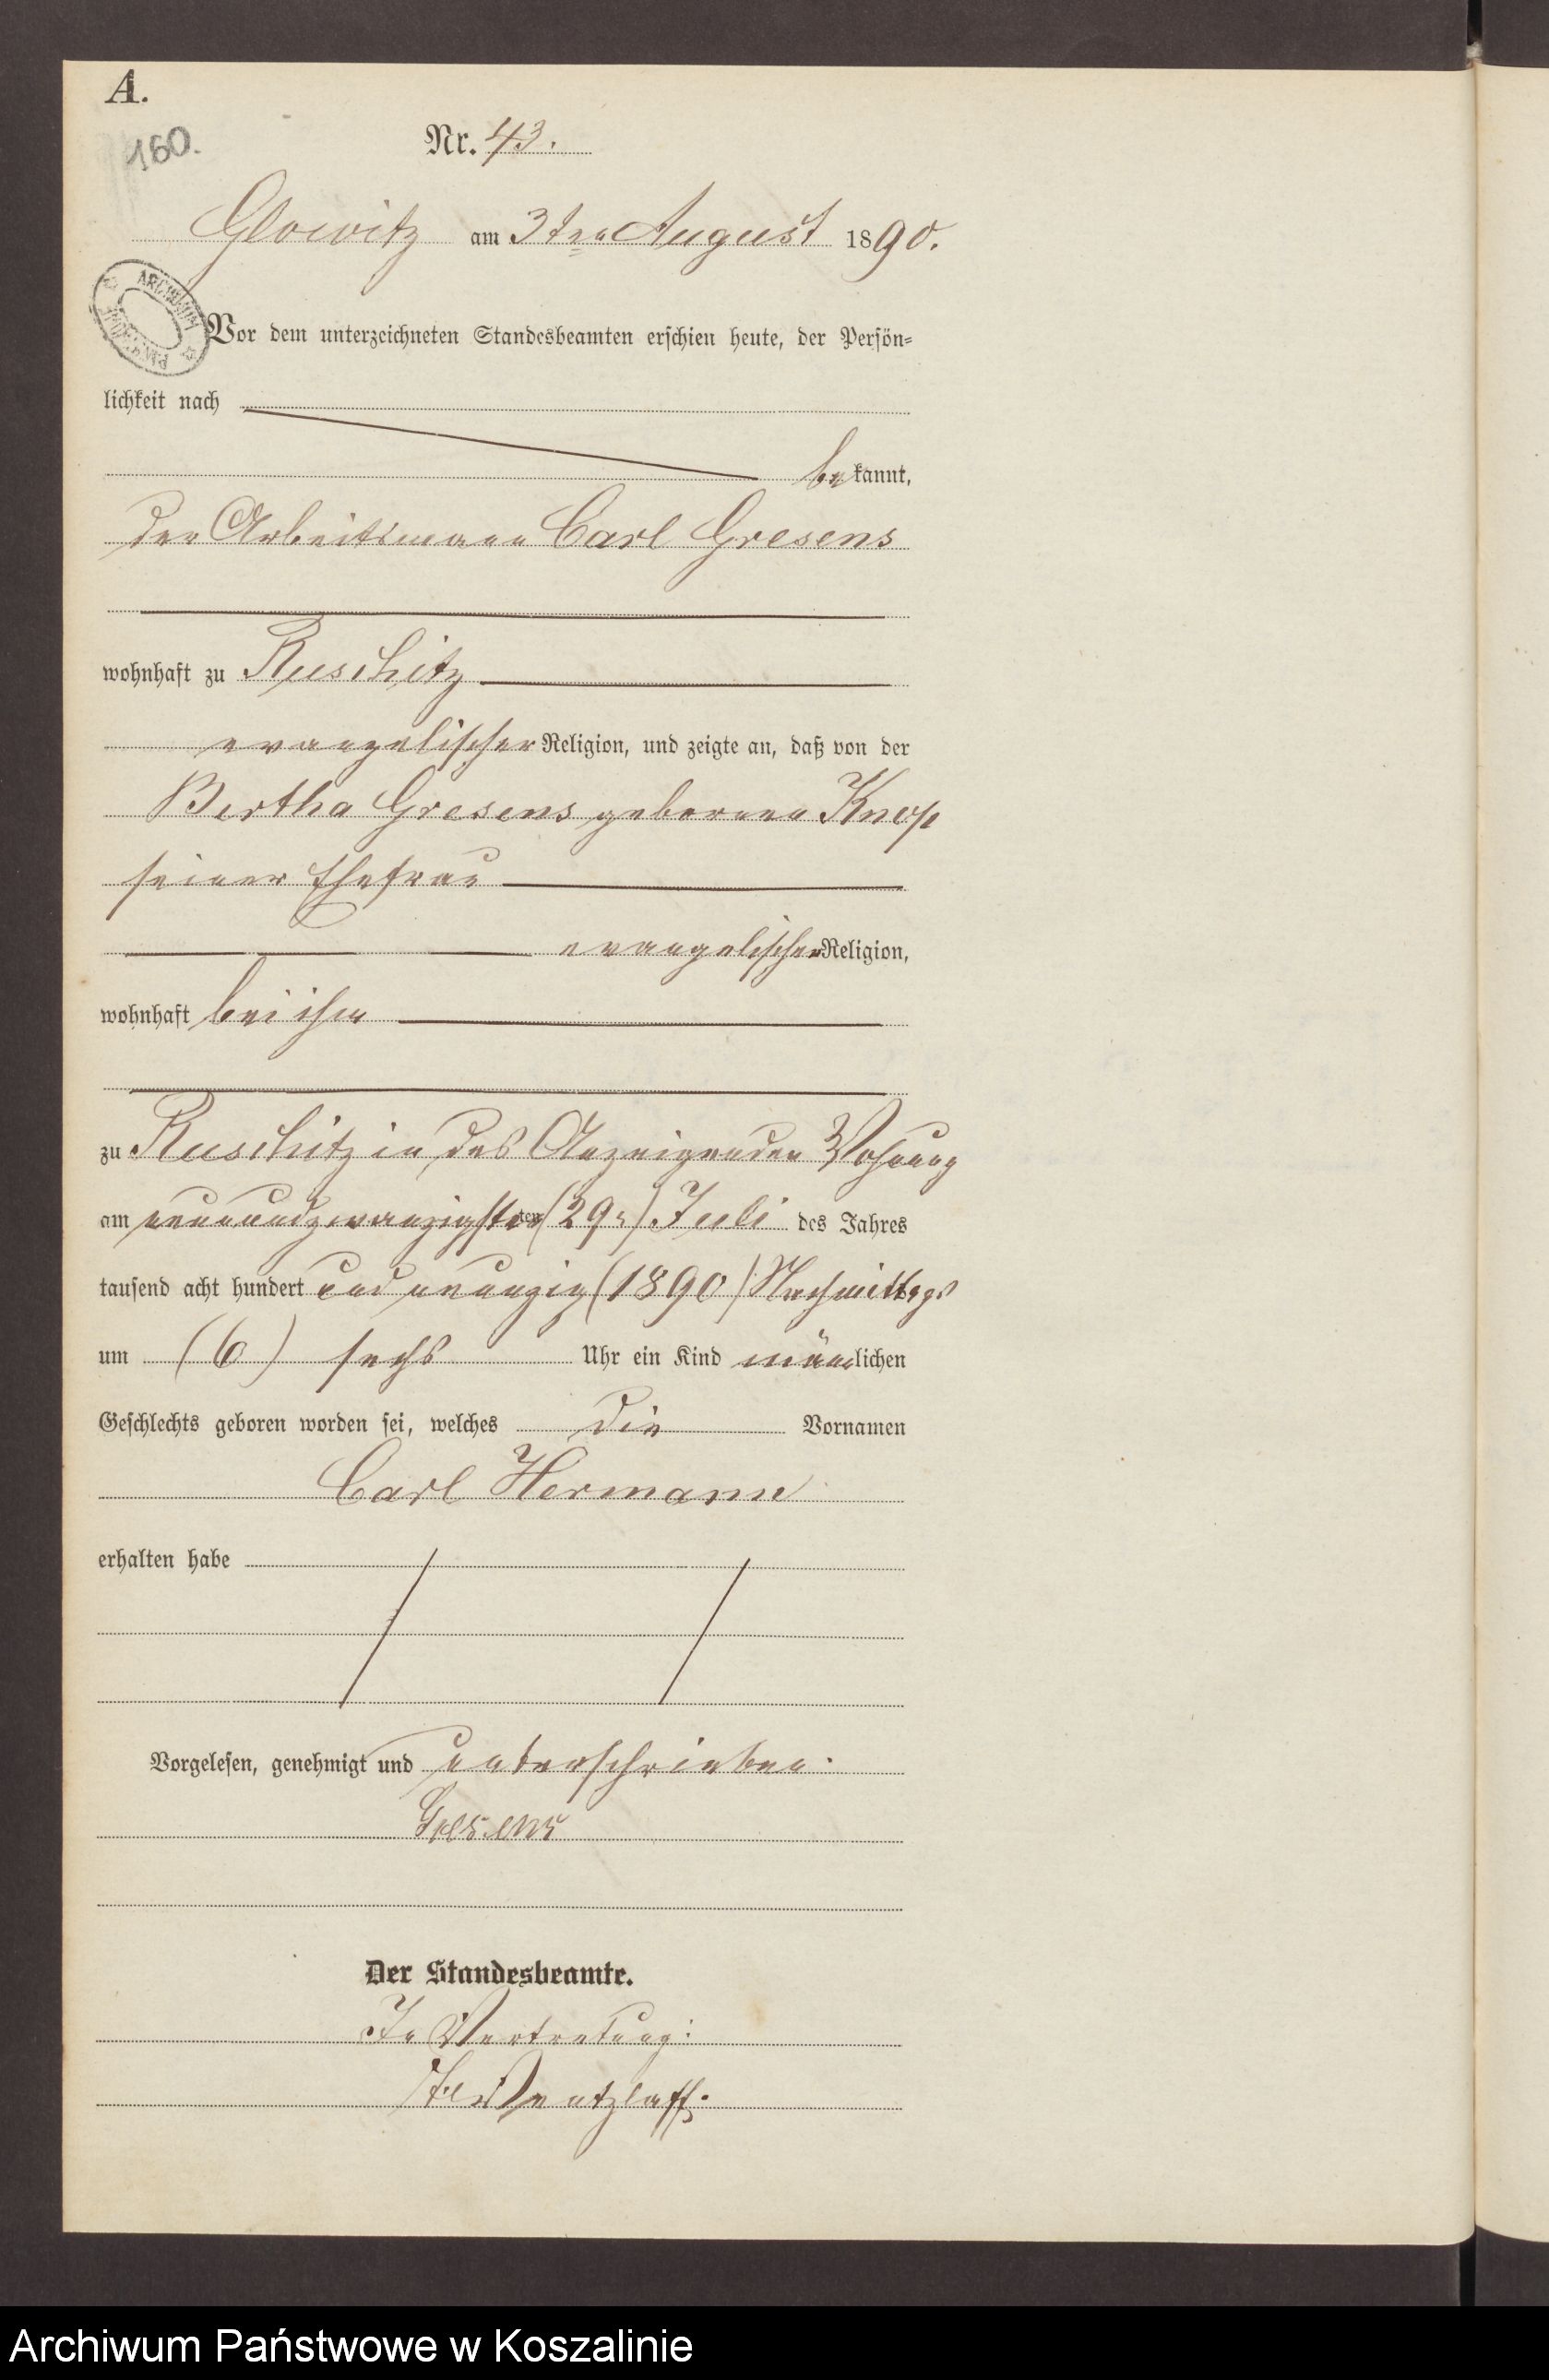 A.
160.
Nr. 43.
Glowitz am 3ten August 1890.
ARCHIWUM
Vor dem unterzeichneten Standesbeamten erschien heute, der Persön-
lichkeit nach
bekannt,
der Arbeitsmann Carl Gresens
wohnhaft zu Ruschitz
evangelischer Religion, und zeigte an, daß von der
Bertha Gresens geborenen Knop
seiner Ehefrau
evangelischer Religion,
wohnhaft bei ihm
zu Ruschitz in des Anzeigenden Wohnung
am neunundzwanzigsten (29n) Juli des Jahres
tausend acht hundert und neunzig (1890) Nachmittags
um (6) sechs Uhr ein Kind männlichen
Geschlechts geboren worden sei, welches die Vornamen
Carl Hermann
erhalten habe
Vorgelesen, genehmigt und unterschrieben.
Gresens
Der Standesbeamte.
In Vertretung:
Wentzlaff.
Archiwum Państwowe w Koszalinie